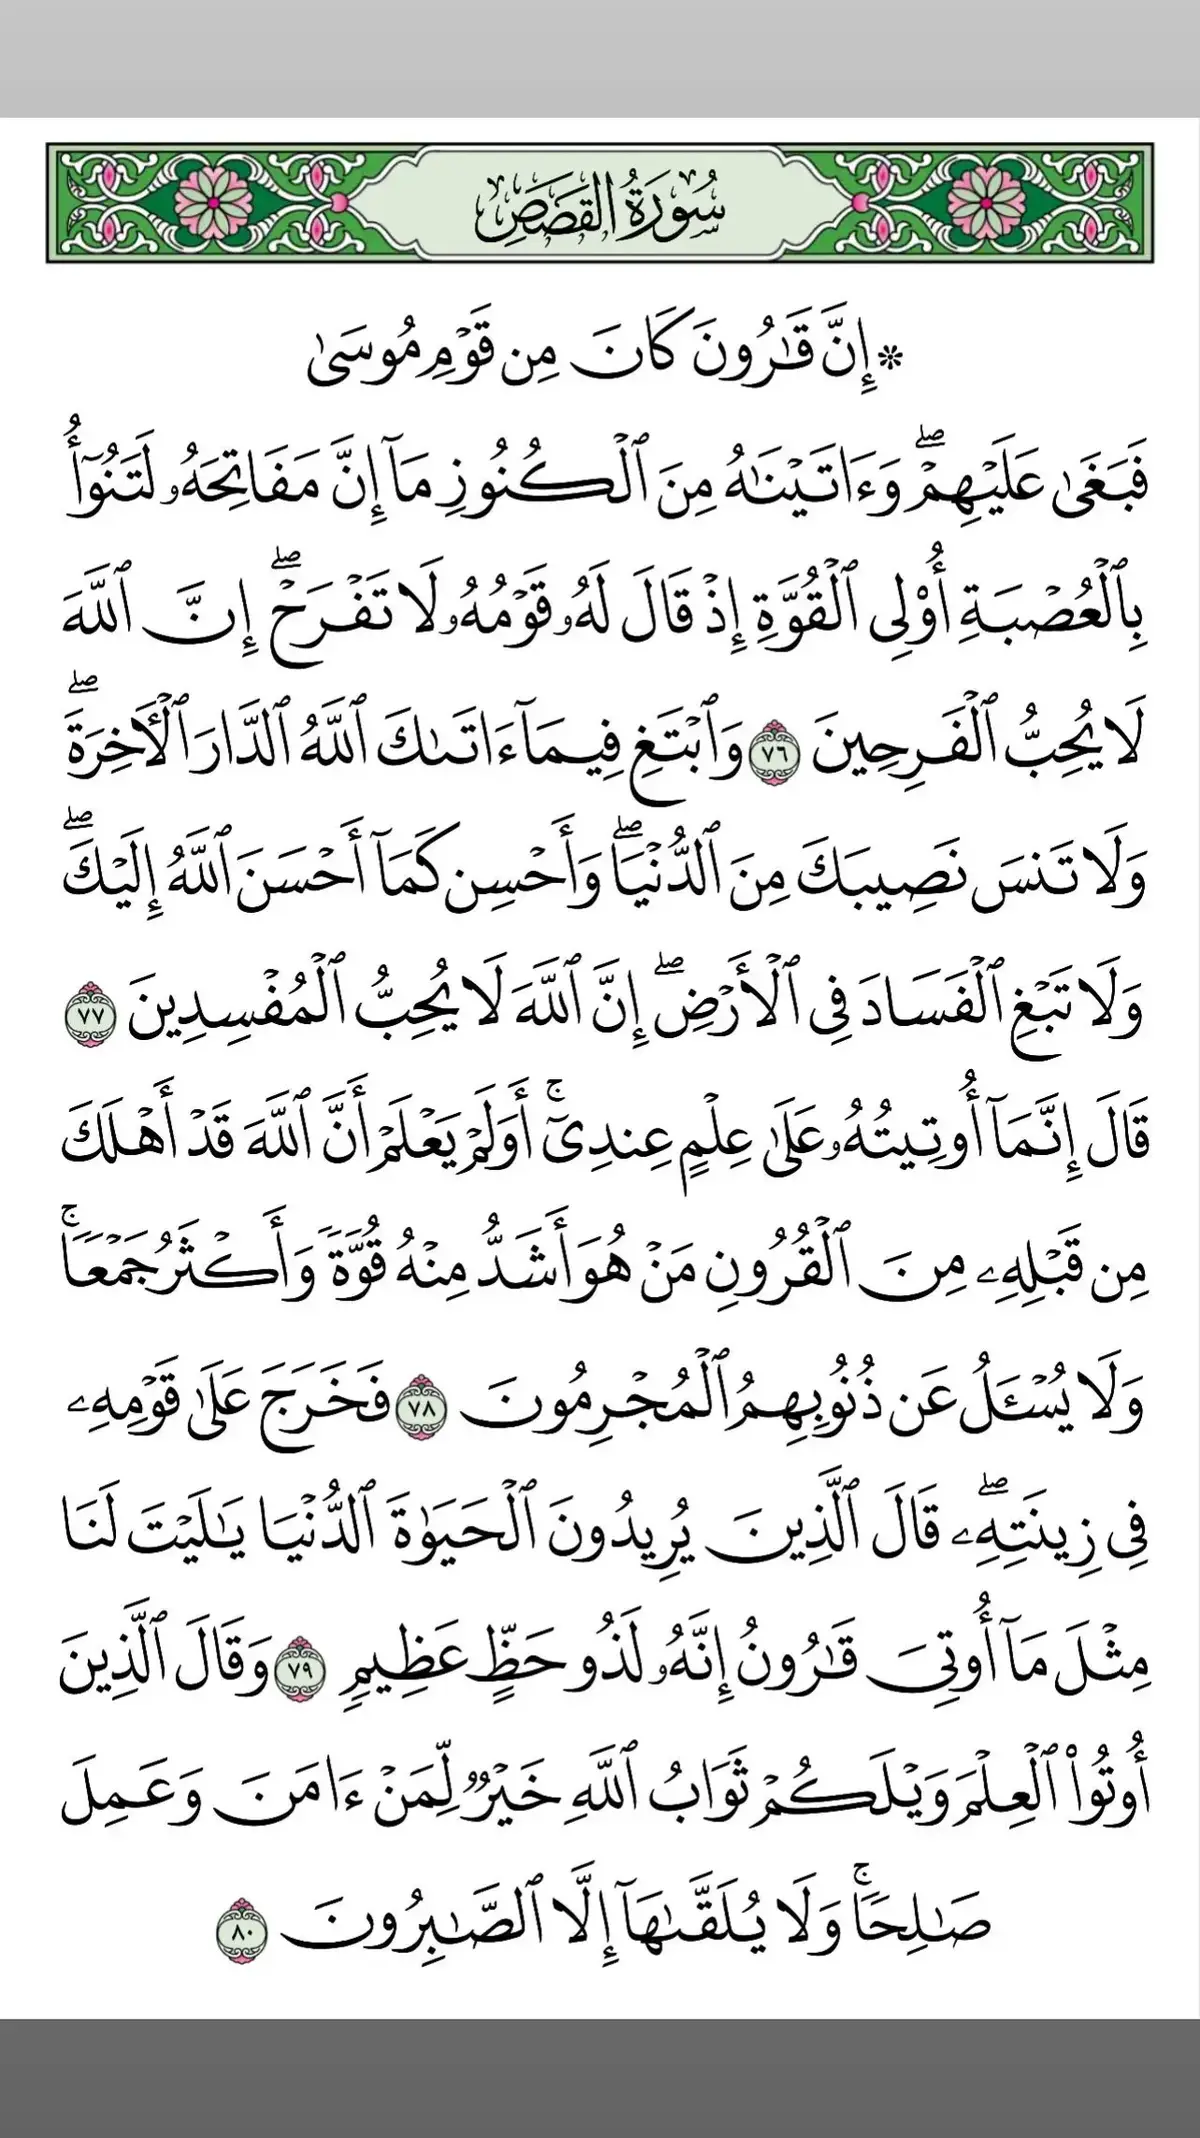 سُورَةُ القَصَصِ
۞ إِنَّ قَٰرُونَ كَانَ مِن قَوْمِ مُوسَىٰ
فَبَغَىٰ عَلَيْهِمْۖ وَءَاتَيْنَٰهُ مِنَ ٱلْكُنُوزِ مَآ إِنَّ مَفَاتِحَهُۥ لَتَنُوٓأُ
بِٱلْعُصْبَةِ أُوْلِى ٱلْقُوَّةِ إِذْ قَالَ لَهُۥ قَوْمُهُۥ لَا تَفْرَحْۖ إِنَّ ٱللَّهَ
لَا يُحِبُّ ٱلْفَرِحِينَ ٧٦ وَٱبْتَغِ فِيمَآ ءَاتَىٰكَ ٱللَّهُ ٱلدَّارَ ٱلْأَخِرَةَۖ
وَلَا تَنسَ نَصِيبَكَ مِنَ ٱلدُّنْيَاۖ وَأَحْسِن كَمَآ أَحْسَنَ ٱللَّهُ إِلَيْكَۖ
وَلَا تَبْغِ ٱلْفَسَادَ فِى ٱلْأَرْضِۖ إِنَّ ٱللَّهَ لَا يُحِبُّ ٱلْمُفْسِدِينَ ٧٧
قَالَ إِنَّمَآ أُوتِيتُهُۥ عَلَىٰ عِلْمٍ عِندِىٓۚ أَوَلَمْ يَعْلَمْ أَنَّ ٱللَّهَ قَدْ أَهْلَكَ
مِن قَبْلِهِۦ مِنَ ٱلْقُرُونِ مَنْ هُوَ أَشَدُّ مِنْهُ قُوَّةً وَأَكْثَرُ جَمْعًاۚ
وَلَا يُسْـَٔلُ عَن ذُنُوبِهِمُ ٱلْمُجْرِمُونَ ٧٨ فَخَرَجَ عَلَىٰ قَوْمِهِۦ
فِى زِينَتِهِۦۖ قَالَ ٱلَّذِينَ يُرِيدُونَ ٱلْحَيَوٰةَ ٱلدُّنْيَا يَٰلَيْتَ لَنَا
مِثْلَ مَآ أُوتِىَ قَٰرُونُ إِنَّهُۥ لَذُو حَظٍّ عَظِيمٍ ٧٩ وَقَالَ ٱلَّذِينَ
أُوتُواْ ٱلْعِلْمَ وَيْلَكُمْ ثَوَابُ ٱللَّهِ خَيْرٌ لِّمَنْ ءَامَنَ وَعَمِلَ
صَٰلِحًاۚ وَلَا يُلَقَّىٰهَآ إِلَّا ٱلصَّٰبِرُونَ ٨٠